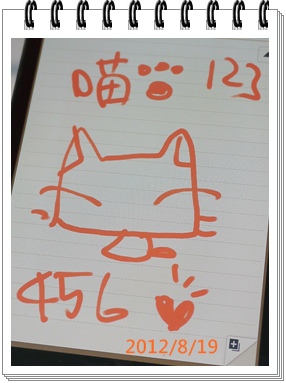 喵 123
456
2012/8/19